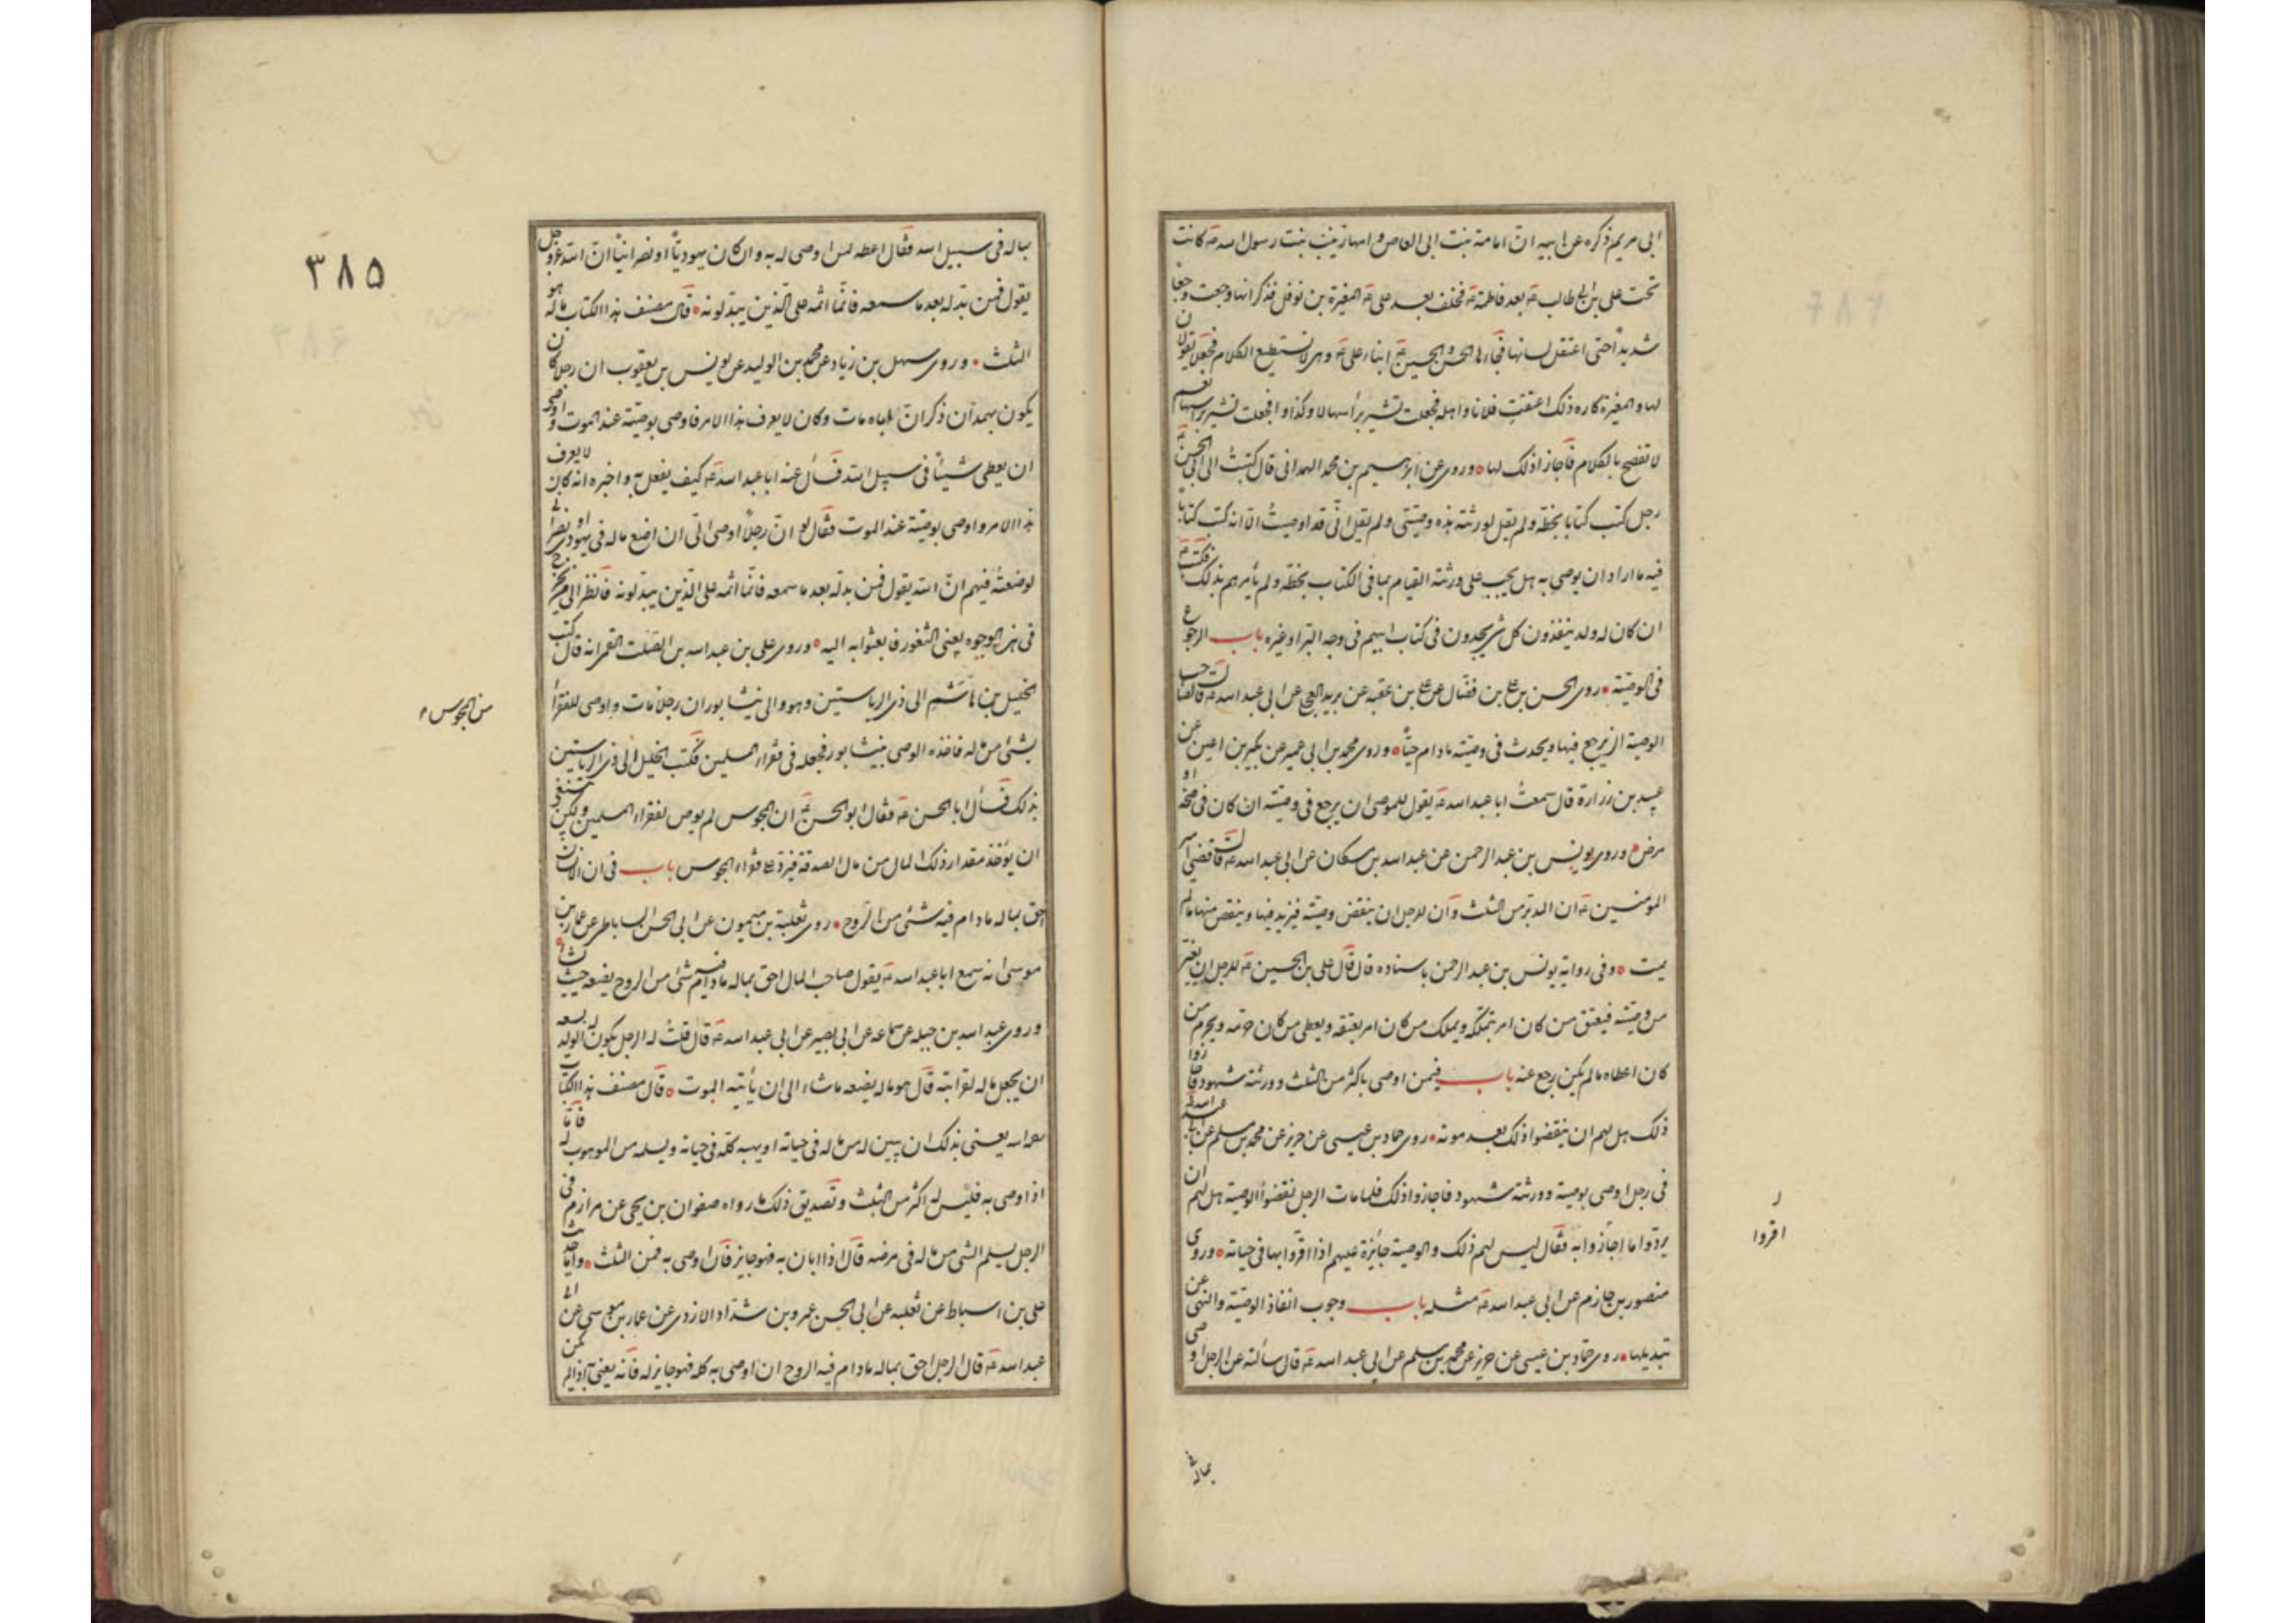 ابی مریم ذکره عن ابیه انّ امامة بنت ابی العاص و امها زینب بنت رسول الله ص کانت
تحت علی بن ابی طالب ع بعد فاطمة ع فخلف بعد علی ع المغیرة بن نوفل فذکر انها وجعت وجعا
شدیداً حتی اعتقل لسانها فجاءها الحسن و الحسین ع ابناء علی ع و هی لا تستطیع الکلام فجعلا یقولان
لها و المغیرة کاره ذلک اعتقت فلانا و اهله فجعلت تشیر برأسها لا و کذا و کذا فجعلت تشیر برأسها نعم
لا تفصح بالکلام فاجازا ذلک لها و روی عن ابرهیم بن محمد الهمدانی قال کتبتُ الی ابی الحسن ع
رجل کتب کتابا بخطّه و لم یقل لورثته هذه وصیّتی و لم یقل انّی قد اوصیتُ الّا انه کتب کتاباً
فیه ما اراد ان یوصی به هل یجب علی ورثته القیام بما فی الکتاب بخطّه و لم یأمرهم بذلک فکتب ع
ان کان له ولد ینفذون کل شیء یجدون فی کتاب ابیهم فی وجه البرّ او غیره باب الرجوع
فی الوصیّة روی الحسن بن علی بن فضّال عن علی بن عقبه عن برید العجلی عن ابی عبد الله ع قال لصاحب
الوصیة ان یرجع فیها و یحدث فی وصیّته مادام حیّاً و روی محمد بن ابی عمیر عن بکیر بن اعین عن
عبید بن زرارة قال سمعتُ ابا عبد الله ع یقول للموصی ان یرجع فی وصیّته ان کان فی صحّة او
مرض و روی یونس بن عبد الرحمن عن عبد الله بن مسکان عن ابی عبد الله ع قال قضی امیر
المومنین ع ان المدبّر من الثلث و أن للرجل ان ینقض وصیّته فیزید فیها و ینقص منها ما لم
یمت و فی روایة یونس بن عبد الرحمن باسناده قال قال علی بن الحسین ع للرجل ان یغیّر
من وصیّته فیعتق من کان امر بتملّکه و یملک من کان امر بعتقه و یعطی من کان حرّمه و یحرم من
کان اعطاه ما لم یکن رجع عنه باب فیمن اوصی باکثر من الثلث و ورثته شهود فاجازوا
ذلک هل لهم ان ینقضوا ذلک بعد موته روی حماد بن عیسی عن حریز عن محمد بن مسلم عن ابی عبد الله ع
فی رجل اوصی بوصیة و ورثته شهود فاجازوا ذلک فلما مات الرجل نقضوا الوصیة هل لهم ان
یردّوا ما اجازوا به فقال لیس لهم ذلک و الوصیة جائزة علیهم اذا اقرّوا بها فی حیاته و روی
منصور بن حازم عن ابی عبد الله ع مثله باب وجوب انفاذ الوصیّة و النهی عن
تبدیلها روی حمّاد بن عیسی عن حریز عن محمد بن مسلم عن ابی عبد الله ع قال سألته عن الرجل اوصی
اقروا
بماله فی
۳۸۵
بماله فی سبیل الله فقال اعطه لمن اوصی له به و ان کان یهودیّاً او نصرانیّاً انّ الله عزّ و جل
یقول فمن بدّله بعد ما سمعه فانّما اثمه علی الّذین یبدّلونه قال مصنف هذا الکتاب ماله هو
الثلث و روی سهل بن زیاد عن محمد بن الولید عن یونس بن یعقوب ان رجلا کان
یکون بهمدان ذکر انّ اباه مات و کان لا یعرف هذا الامر فاوصی بوصیّة عند الموت و اوصی
ان یعطی شیئاً فی سبیل الله فسأل عنه ابا عبد الله ع کیف یفعل به و اخبره انه کان لا یعرف
هذا الامر و اوصی بوصیّة عند الموت فقال لو انّ رجلاً اوصی الیّ ان اضع ماله فی یهودی او نصرانی
لوضعتُه فیهم انّ الله یقول فمن بدّله بعد ما سمعه فانّما اثمه علی الّذین یبدّلونه فانظر الی من یخرج
فی هذه الوجوه یعنی الثغور فابعثوا به الیه و روی علی بن عبد الله بن الصّلت القمی انه قال کتب
الخلیل بن هاشم الی ذی الریاستین و هو والی نیشابور ان رجلاً مات و اوصی للفقراء
من المجوس
بشیٔ من ماله فاخذه الوصی بنیشابور فجعله فی فقراء المسلمین فکتب الخلیل الی ذی الریاستین
بذلک فسأل ابا الحسن ع فقال ابو الحسن ع ان المجوسی لم یوص لفقراء المسلمین و لکن ینبغی
ان یؤخذ مقدار ذلک المال من مال الصدقة فیردّ علی فقراء المجوس باب فی ان الانسان
احق بماله ما دام فیه شیٔ من الروح روی ثعلبة بن میمون عن ابی الحسن الساباطی عن عمار بن
موسی انه سمع ابا عبد الله ع یقول صاحب المال احق بماله ما دام فیه شیٔ من الروح یضعه حیث شاء
و روی عبد الله بن جبلة عن سماعة عن ابی بصیر عن ابی عبد الله ع قال قلتُ له الرجل یکون له الولد یسعه
ان یجعل ماله لقرابته قال هو ماله یضعه ما شاء الی ان یأتیه الموت قال مصنف هذا الکتاب
یعنی بذلک ان یبین له من ماله فی حیاته او یهبه کلّه فی حیاته و یسلمه من الموهوب له فامّا
اذا اوصی به فلیس له اکثر من الثلث و تصدیق ذلک ما رواه صفوان بن یحیی عن مرازم فی
الرجل یسلم الشیٔ من ماله فی مرضه قال اذا ابان به فهو جایز فان اوصی به فمن الثلث و امّا حدیث
علی بن اسباط عن ثعلبة عن ابی الحسن عمرو بن شدّاد الازدی عن عمار بن موسی عن ابی
عبد الله ع قال الرجل احق بماله ما دام فیه الروح ان اوصی به کله فهو جایز له فانه یعنی به اذا لم یکن